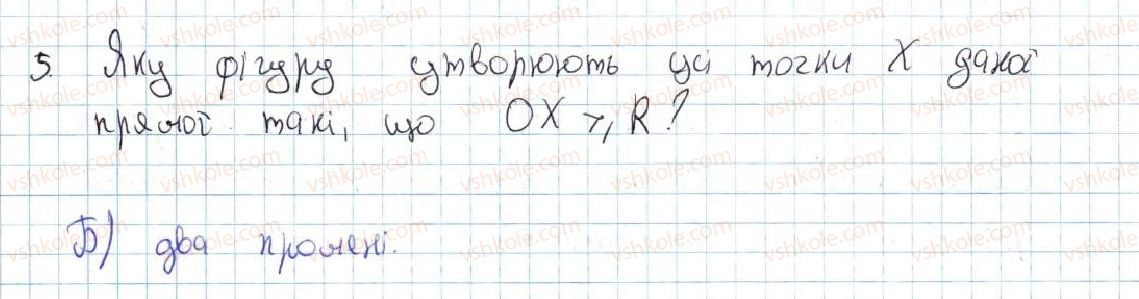 5. Яку фігуру утворюють усі точки X даної
прямої такі, що OX ⩾ R?
Б) два промені.